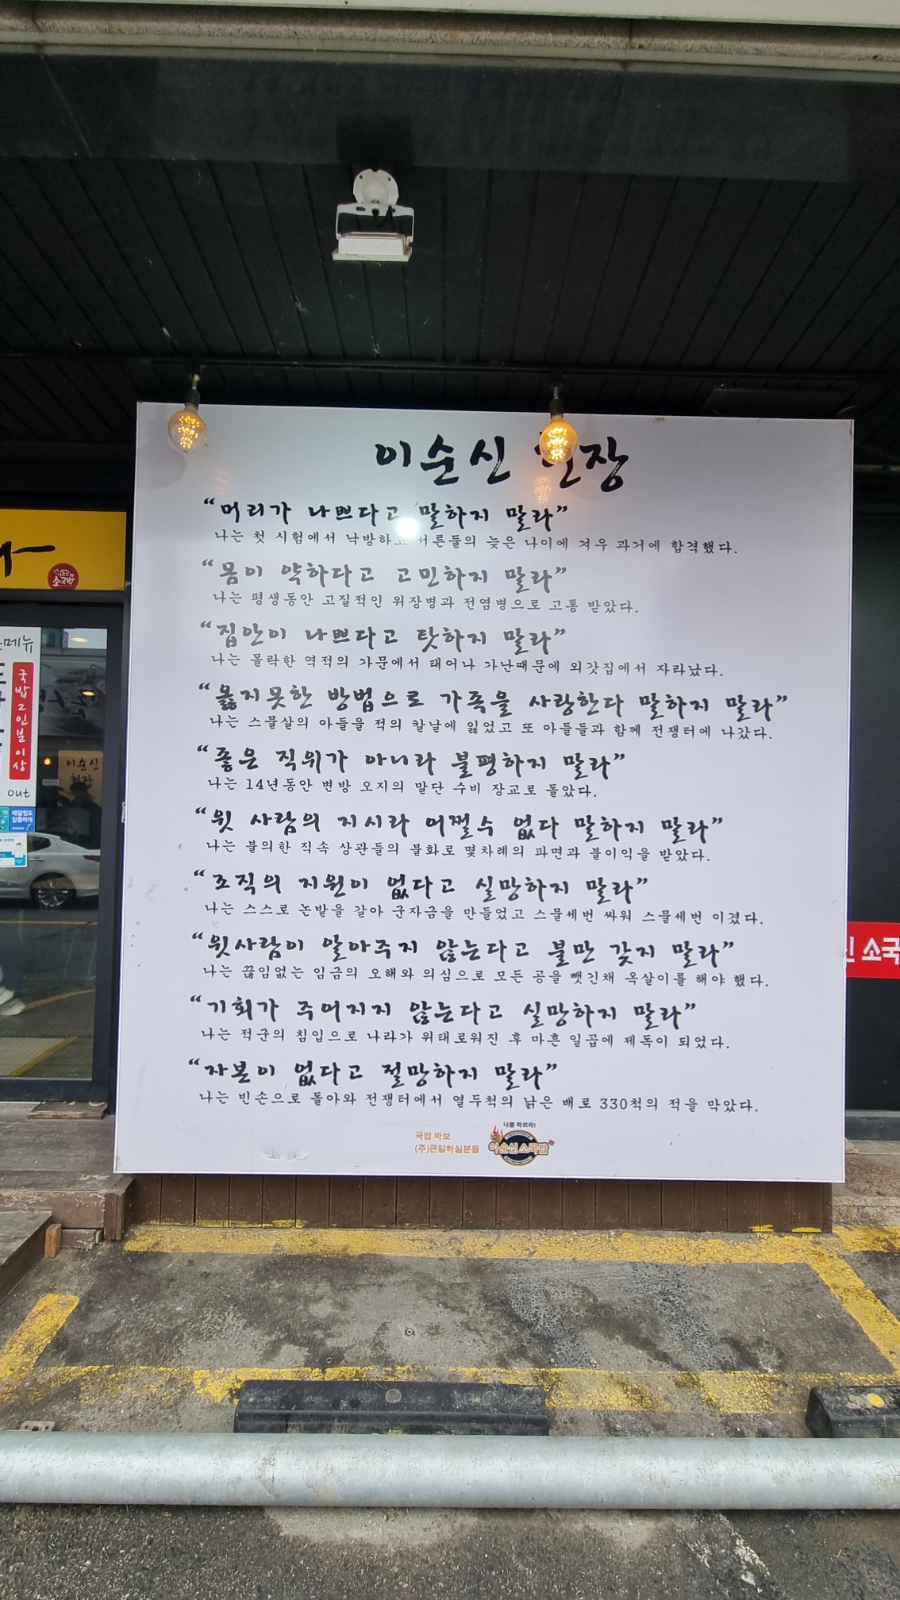 이순신
“머리가 나쁘다고 말하지 말라”
나는 첫 시험에서 낙방하고 서른둘의 늦은 나이에 겨우 과거에 합격했다.
“몸이 약하다고 고민하지 말라”
나는 평생동안 고질적인 위장병과 전염병으로 고통 받았다.
“집안이 나쁘다고 탓하지 말라”
나는 몰락한 역적의 가문에서 태어나 가난때문에 외갓집에서 자라났다.
“옳지못한 방법으로 가족을 사랑한다 말하지 말라”
나는 스물살의 아들을 적의 칼날에 잃었고 또 아들들과 함께 전쟁터에 나갔다.
“좋은 직위가 아니라 불평하지 말라”
나는 14년동안 변방 오지의 말단 수비 장교로 돌았다.
“윗 사람의 지시라 어쩔수 없다 말하지 말라”
나는 불의한 직속 상관들의 불화로 몇차례의 파면과 불이익을 받았다.
“조직의 지원이 없다고 실망하지 말라”
나는 스스로 논밭을 갈아 군자금을 만들었고 스물세번 싸워 스물세번 이겼다.
“윗사람이 알아주지 않는다고 불만 갖지 말라”
나는 끊임없는 임금의 오해와 의심으로 모든 공을 뺏긴채 옥살이를 해야 했다.
“기회가 주어지지 않는다고 실망하지 말라”
나는 적군의 침입으로 나라가 위태로워진 후 마흔 일곱에 제독이 되었다.
“자본이 없다고 절망하지 말라”
나는 빈손으로 돌아와 전쟁터에서 열두척의 낡은 배로 330척의 적을 막았다.
국밥 바보
(주)큰일하실분들
나를 따르라!
이순신 소국밥
소국밥
메뉴
국밥 2인분 이상
out
이순신
소국